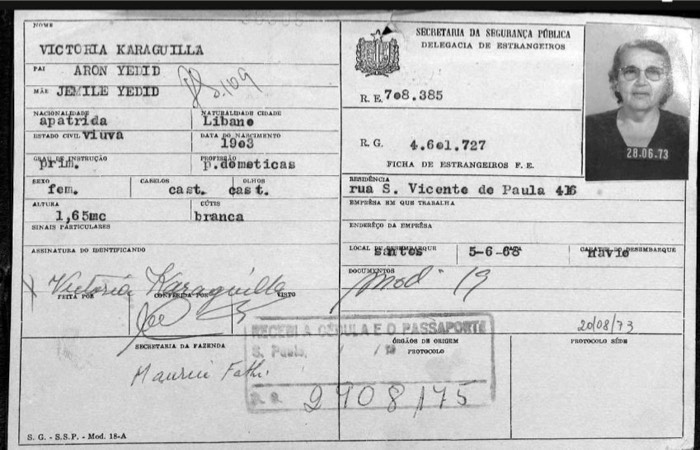 NOME
VICTORIA KARAGUILLA
PAI ARON YEDID
MÃE JEMILE YEDID
NACIONALIDADE NATURALIDADE CIDADE
apatrida Libano
ESTADO CIVIL viuva DATA DO NASCIMENTO
1903
GRAU DE INSTRUÇÃO PROFISSÃO
prim. p.dometicas
SEXO CABELOS OLHOS
fem. cast. cast.
ALTURA CÚTIS
1,65mc branca
SINAIS PARTICULARES
ASSINATURA DO IDENTIFICANDO
Victória Karaguilla
FEITA POR CONFERIDA POR VISTO
SECRETARIA DA FAZENDA
S. G. - S.S.P. - Mod. 18-A
SECRETARIA DA SEGURANÇA PÚBLICA
DELEGACIA DE ESTRANGEIROS
R. E. 708.385
R. G. 4.601.727
FICHA DE ESTRANGEIROS F. E.
28.06.73
RESIDÊNCIA
rua S. Vicente de Paula 416
EMPRÊSA EM QUE TRABALHA
ENDERÊÇO DA EMPRÊSA
LOCAL DO DESEMBARQUE DATA CARÁTER DO DESEMBARQUE
santos 5-6-68 Navio
DOCUMENTOS
mod - 19
RECEBI A CÉDULA E O PASSAPORTE
S. Paulo,
20/08/73
ÓRGÃOS DE ORIGEM
PROTOCOLO
PROTOCOLO SÉDE